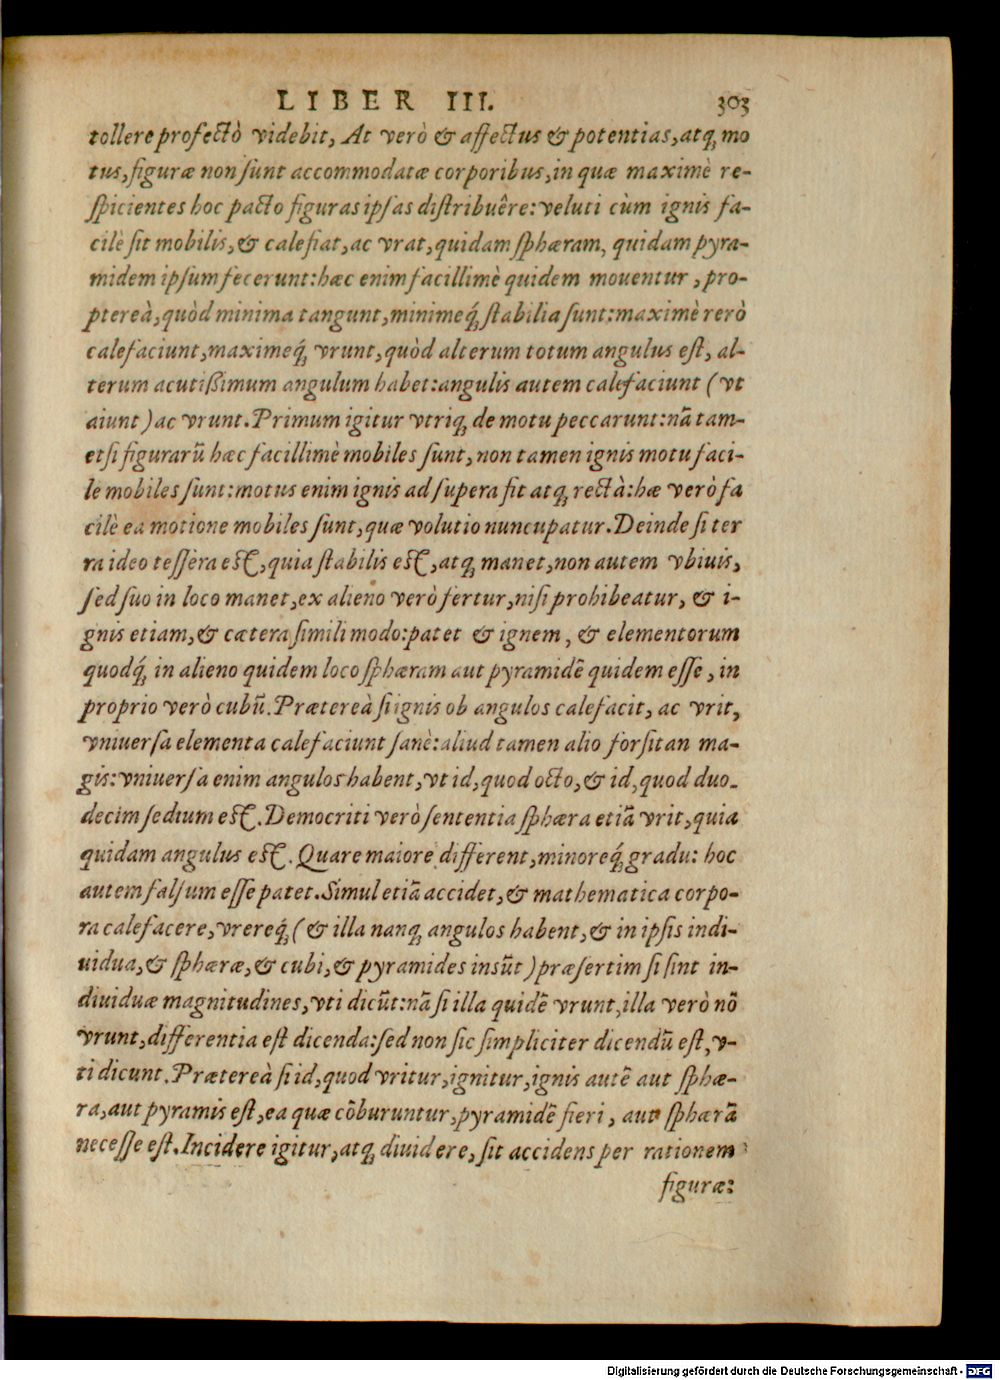 LIBER III. 303
tollere profectò videbit, At verò & affectus & potentias, atq́; mo
tus, figuræ non sunt accommodatæ corporibus, in quæ maximè re-
spicientes hoc pacto figuras ipsas distribuêre: veluti cùm ignis fa-
cilè sit mobilis, & calefiat, ac vrat, quidam sphæram, quidam pyra-
midem ipsum fecerunt: hæc enim facillimè quidem mouentur, pro-
ptereà, quòd minima tangunt, minimeq́; stabilia sunt: maximè rerò
calefaciunt, maximeq́; vrunt, quòd alterum totum angulus est, al-
terum acutißimum angulum habet: angulis autem calefaciunt (vt
aiunt) ac vrunt. Primum igitur vtriq; de motu peccarunt: nã tam-
etsi figurarũ hæc facillimè mobiles sunt, non tamen ignis motu faci-
le mobiles sunt: motus enim ignis ad supera fit atq; rectà: hæ verò fa
cilè ea motione mobiles sunt, quæ volutio nuncupatur. Deinde si ter
ra ideo tessera est, quia stabilis est, atq; manet, non autem vbiuis,
sed suo in loco manet, ex alieno verò fertur, nisi prohibeatur, & i-
gnis etiam, & cætera simili modo: patet & ignem, & elementorum
quodq́; in alieno quidem loco sphæram aut pyramidẽ quidem esse, in
proprio verò cubũ. Prætereà si ignis ob angulos calefacit, ac vrit,
vniuersa elementa calefaciunt sanè: aliud tamen alio forsitan ma-
gis: vniuersa enim angulos habent, vt id, quod octo, & id, quod duo-
decim sedium est. Democriti verò sententia sphæra etiã vrit, quia
quidam angulus est. Quare maiore different, minoreq́; gradu: hoc
autem falsum esse patet. Simul etiã accidet, & mathematica corpo-
ra calefacere, vrereq́; (& illa nanq; angulos habent, & in ipsis indi-
uidua, & sphæræ, & cubi, & pyramides insũt) præsertim si sint in-
diuiduæ magnitudines, vti dicũt: nã si illa quidẽ vrunt, illa verò nõ
vrunt, differentia est dicenda: sed non sic simpliciter dicendũ est, v-
ti dicunt. Prætereà si id, quod vritur, ignitur, ignis autẽ aut sphæ-
ra, aut pyramis est, ea quæ cõburuntur, pyramidẽ fieri, aut sphærã
necesse est. Incidere igitur, atq; diuidere, sit accidens per rationem
figuræ:
Digitalisierung gefördert durch die Deutsche Forschungsgemeinschaft - DFG